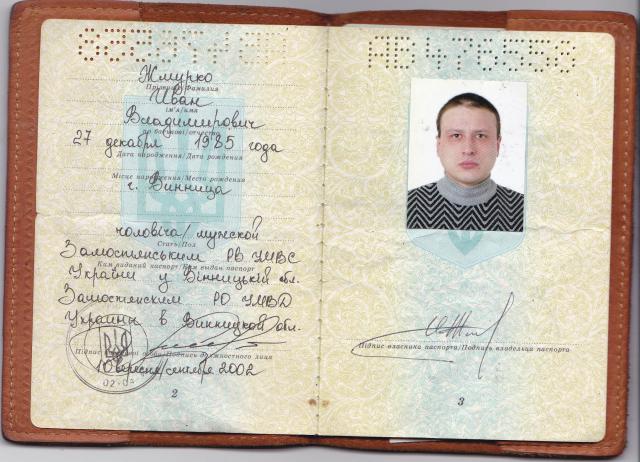 Жмурко
Прізвище/Фамилия
Иван
ім'я/имя
Владимирович
по батькові/отчество
27 декабря 1985 года
Дата народження/Дата рождения
Місце народження/Место рождения
г. Винница
чоловіча/мужской
Стать/Пол
Замостянським РВ УМВС
Ким виданий паспорт/Кем выдан паспорт
України у Вінницькій обл.
Замостянским РО УМВД
Украины в Винницкой обл.
Підпис посадової особи/Подпись должностного лица
10 вересня/сентября 2002
2
Підпис власника паспорта/Подпись владельца паспорта
3